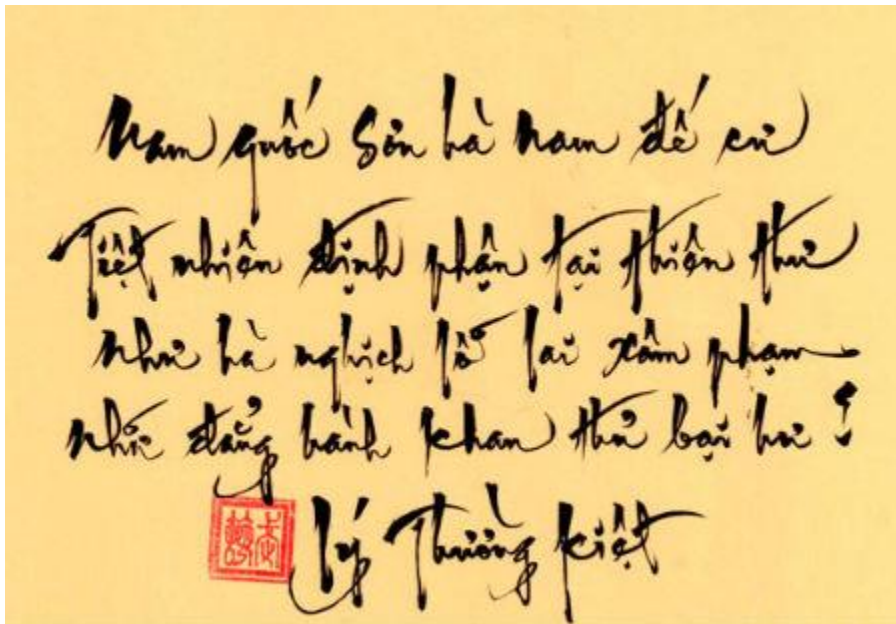 Nam quốc Sơn hà nam đế cư
Tiệt nhiên định phận tại thiên thư
Như hà nghịch lỗ lai xâm phạm
Nhữ đẳng hành khan thủ bại hư !
Lý Thường Kiệt